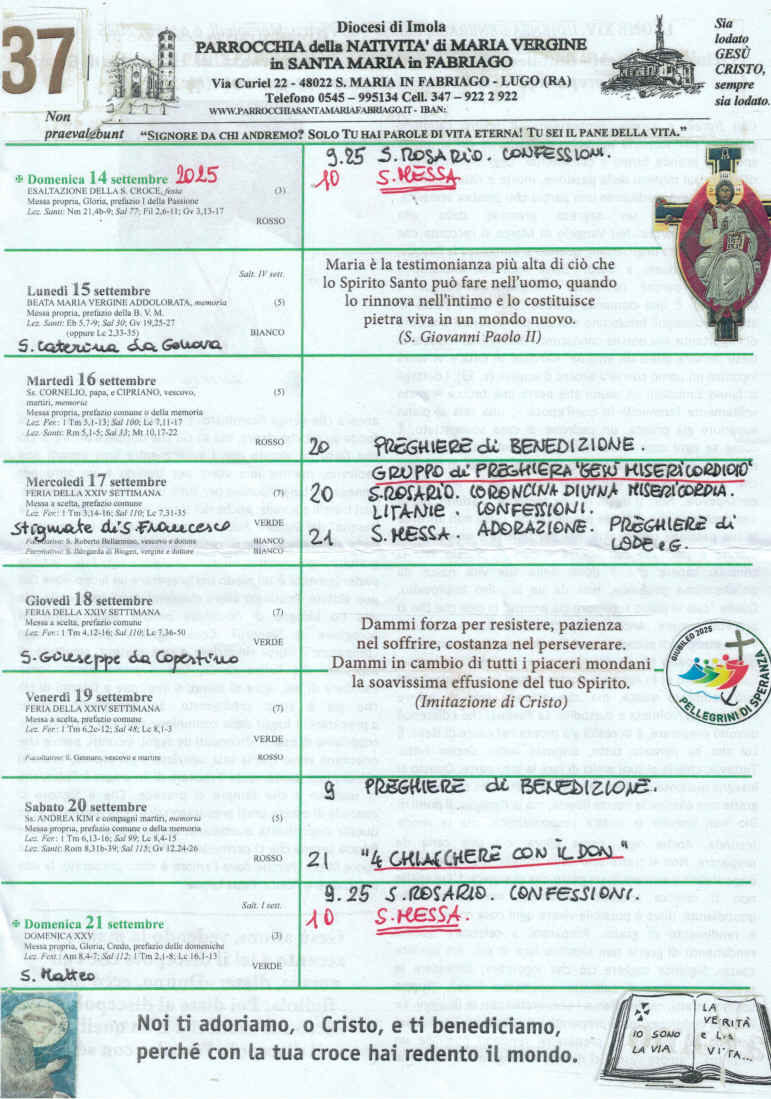 37
Diocesi di Imola
PARROCCHIA della NATIVITA' di MARIA VERGINE
in SANTA MARIA in FABRIAGO
Via Curiel 22 - 48022 S. MARIA IN FABRIAGO - LUGO (RA)
Telefono 0545 – 995134 Cell. 347 – 922 2 922
WWW.PARROCCHIASANTAMARIAFABRIAGO.IT - IBAN:
Sia
lodato
GESÙ
CRISTO,
sempre
sia lodato.
Non
praevalebunt
“SIGNORE DA CHI ANDREMO? SOLO TU HAI PAROLE DI VITA ETERNA! TU SEI IL PANE DELLA VITA.”
✠ Domenica 14 settembre 2025
ESALTAZIONE DELLA S. CROCE, festa (3)
Messa propria, Gloria, prefazio I della Passione
Lez. Santi: Nm 21,4b-9; Sal 77; Fil 2,6-11; Gv 3,13-17
ROSSO
9.25 S. ROSARIO. CONFESSIONI.
10 S. MESSA
Salt. IV sett.
Lunedì 15 settembre
BEATA MARIA VERGINE ADDOLORATA, memoria (5)
Messa propria, prefazio della B. V. M.
Lez. Santi: Eb 5,7-9; Sal 30; Gv 19,25-27
(oppure Lc 2,33-35) BIANCO
S. Caterina da Genova
Maria è la testimonianza più alta di ciò che
lo Spirito Santo può fare nell'uomo, quando
lo rinnova nell'intimo e lo costituisce
pietra viva in un mondo nuovo.
(S. Giovanni Paolo II)
Martedì 16 settembre
Ss. CORNELIO, papa, e CIPRIANO, vescovo, (5)
martiri, memoria
Messa propria, prefazio comune o della memoria
Lez. Fer.: 1 Tm 3,1-13; Sal 100; Lc 7,11-17
Lez. Santi: Rm 5,1-5; Sal 33; Mt 10,17-22
ROSSO
20 PREGHIERE di BENEDIZIONE.
Mercoledì 17 settembre
FERIA DELLA XXIV SETTIMANA (7)
Messa a scelta, prefazio comune
Lez. Fer.: 1 Tm 3,14-16; Sal 110; Lc 7,31-35
Stigmate di S. Francesco VERDE
Facoltativo: S. Roberto Bellarmino, vescovo e dottore BIANCO
Facoltativo: S. Ildegarda di Bingen, vergine e dottore BIANCO
GRUPPO di PREGHIERA "GESÙ MISERICORDIOSO"
20 S. ROSARIO. CORONCINA DIVINA MISERICORDIA.
LITANIE. CONFESSIONI.
21 S. MESSA. ADORAZIONE. PREGHIERE di
LODE e G.
Giovedì 18 settembre
FERIA DELLA XXIV SETTIMANA (7)
Messa a scelta, prefazio comune
Lez. Fer.: 1 Tm 4,12-16; Sal 110; Lc 7,36-50
VERDE
S. Giuseppe da Copertino
Dammi forza per resistere, pazienza
nel soffrire, costanza nel perseverare.
Dammi in cambio di tutti i piaceri mondani
la soavissima effusione del tuo Spirito.
(Imitazione di Cristo)
GIUBILEO 2025
PELLEGRINI DI SPERANZA
Venerdì 19 settembre
FERIA DELLA XXIV SETTIMANA (7)
Messa a scelta, prefazio comune
Lez. Fer.: 1 Tm 6,2c-12; Sal 48; Lc 8,1-3
VERDE
Facoltativo: S. Gennaro, vescovo e martire ROSSO
Sabato 20 settembre
Ss. ANDREA KIM e compagni martiri, memoria (5)
Messa propria, prefazio comune o della memoria
Lez. Fer.: 1 Tm 6,13-16; Sal 99; Lc 8,4-15
Lez. Santi: Rom 8,31b-39; Sal 115; Gv 12,24-26
ROSSO
9 PREGHIERE di BENEDIZIONE.
21 "4 CHIACCHERE CON IL DON"
Salt. I sett.
✠ Domenica 21 settembre
DOMENICA XXV (3)
Messa propria, Gloria, Credo, prefazio delle domeniche
Lez. Fest.: Am 8,4-7; Sal 112; 1 Tm 2,1-8; Lc 16,1-13
VERDE
S. Matteo
9.25 S. ROSARIO. CONFESSIONI.
10 S. MESSA.
Noi ti adoriamo, o Cristo, e ti benediciamo,
perché con la tua croce hai redento il mondo.
IO SONO
LA VIA
LA
VERITÀ
e LA
VITA...